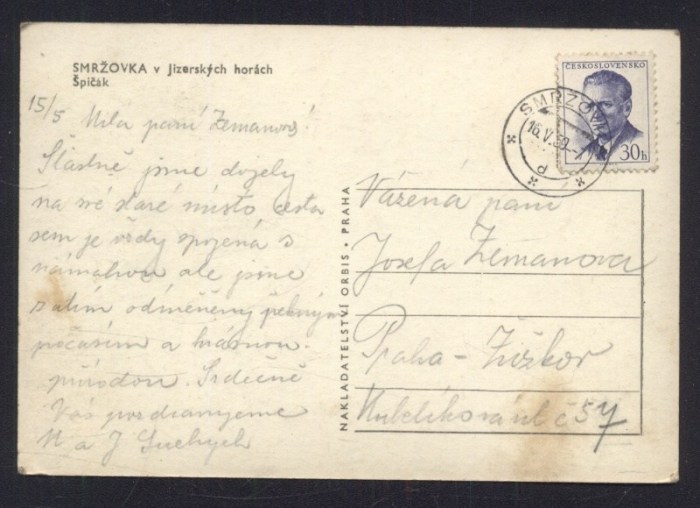 SMRŽOVKA v Jizerských horách
Špičák
15/5 Milá paní Zemanová!
Šťastně jsme dojely
na své staré místo cesta
sem je vždy spojená s
námahou ale jsme
zatím odměněny pěkným
počasím a krásnou
přírodou. Srdečně
Vás pozdravujeme
M a J Suchých
NAKLADATELSTVÍ ORBIS • PRAHA
ČESKOSLOVENSKO
30h
SMRŽOVKA
16.V.59
d
Vážená paní
Josefa Zemanova
Praha - Žižkov
Kubelíkova ul č 57